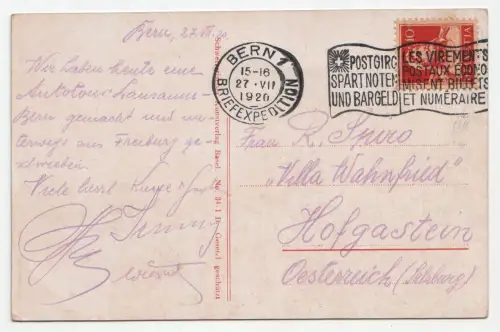 Bern, 27. VII. 20.
Wir haben heute eine
Autotour Lausanne-
Bern gemacht und
aus Freiburg ge-
schrieben
Viele herzl. Küsse
BERN 1
15-16
27·VII
1920
BRIEFEXPEDITION
POSTGIRO
SPART NOTEN
UND BARGELD
LES VIREMENTS
POSTAUX ECONO
MISENT BILLETS
ET NUMÉRAIRE
10
Frau R. Spiro
„Villa Wahnfried"
Hofgastein
Oesterreich (Salzburg)
Basel. No. 34 1 Gesetzl. geschützt